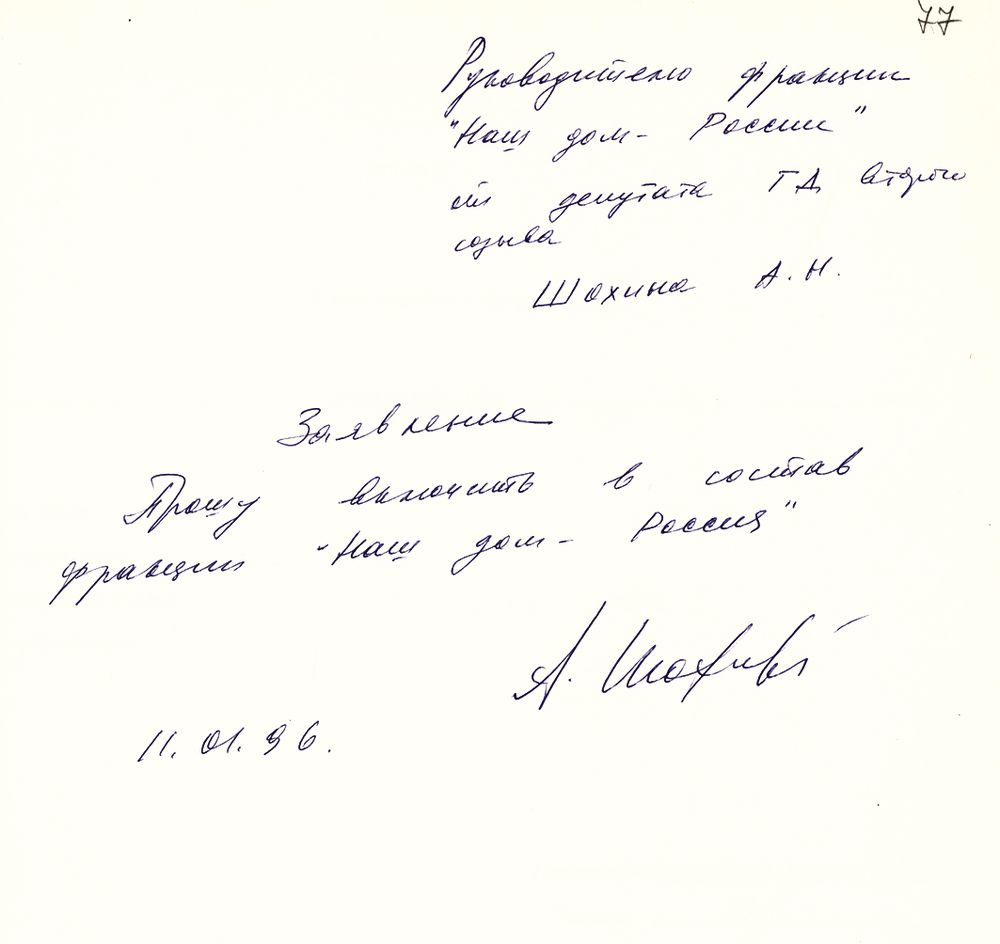 77
Руководителю фракции
"Наш дом - Россия"
от депутата ГД второго
созыва
Шохина А.Н.
Заявление
Прошу включить в состав
фракции "Наш дом - Россия"
А. Шохин
11.01.96.